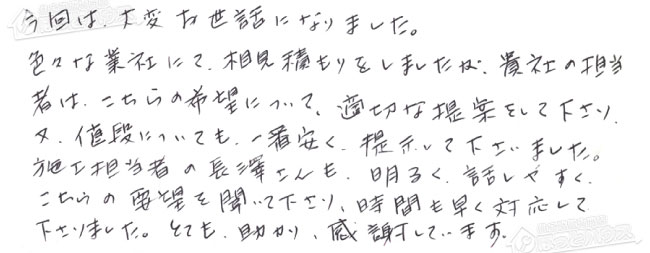 今回は、大変お世話になりました。
色々な業社にて、相見積もりをしましたが、貴社の担当
者は、こちらの希望について、適切な提案をして下さり、
又、値段についても、一番安く、提示して下さいました。
施工担当者の長澤さんも、明るく、話しやすく、
こちらの要望を聞いて下さり、時間も早く対応して
下さりました。とても、助かり、感謝しています。